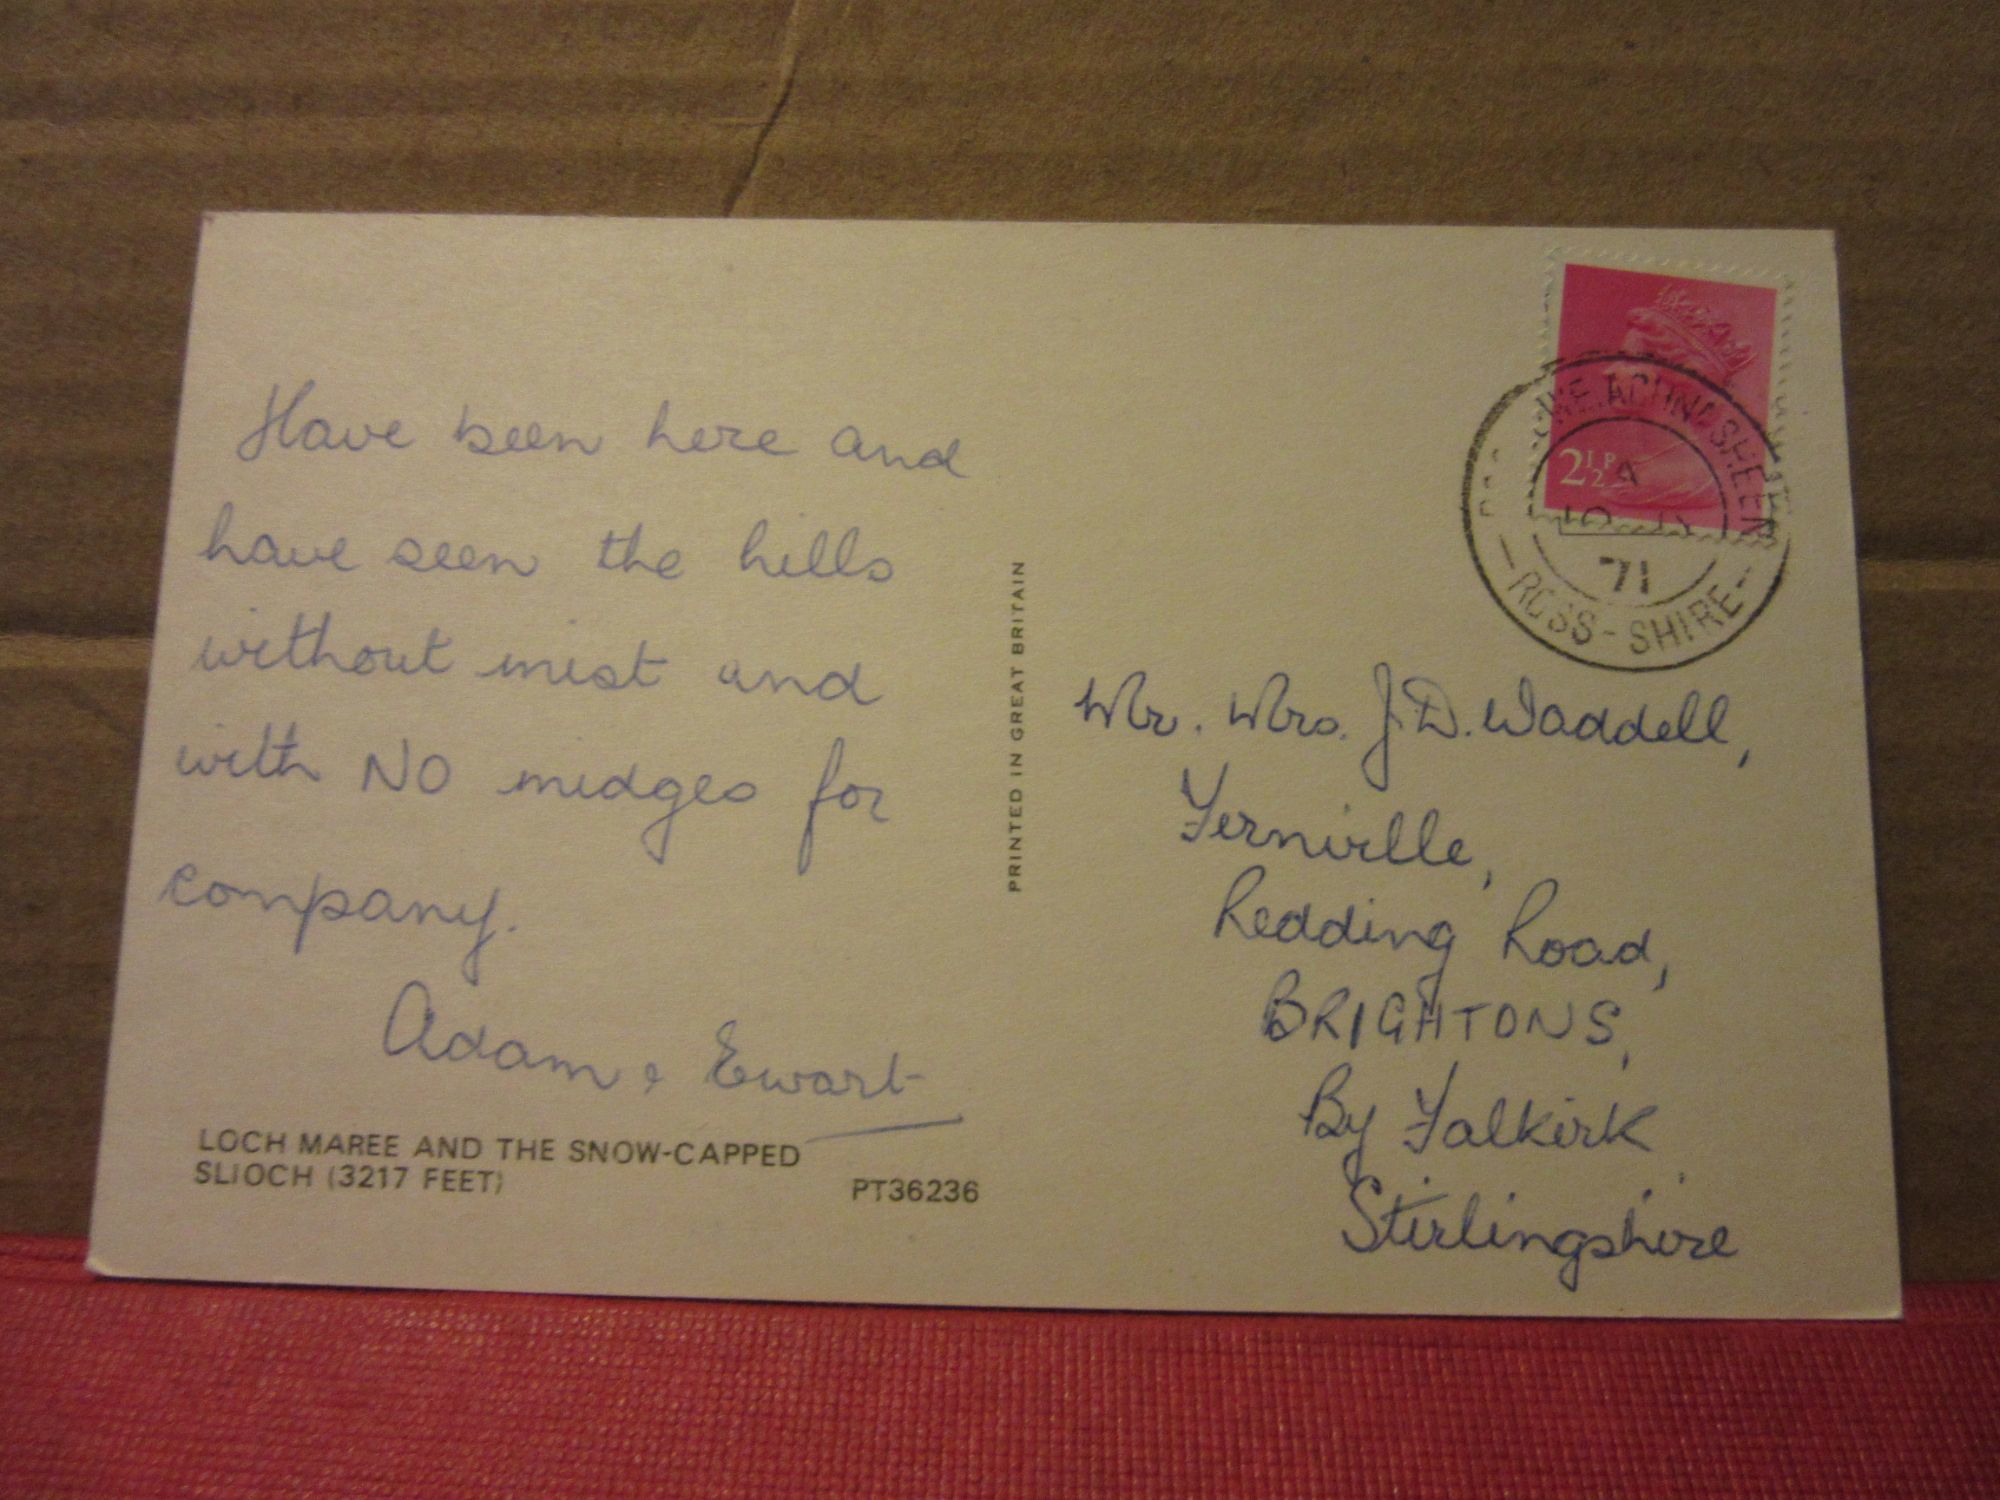 Have been here and
have seen the hills
without mist and
with NO midges for
company.
Adam & Ewart
LOCH MAREE AND THE SNOW-CAPPED
SLIOCH (3217 FEET)
PT36236
PRINTED IN GREAT BRITAIN
2½P
ACHNASHEEN
A
71
—ROSS-SHIRE—
Mr. Mrs. J.D. Waddell,
Fernville,
Redding Road,
BRIGHTONS,
By Falkirk
Stirlingshire